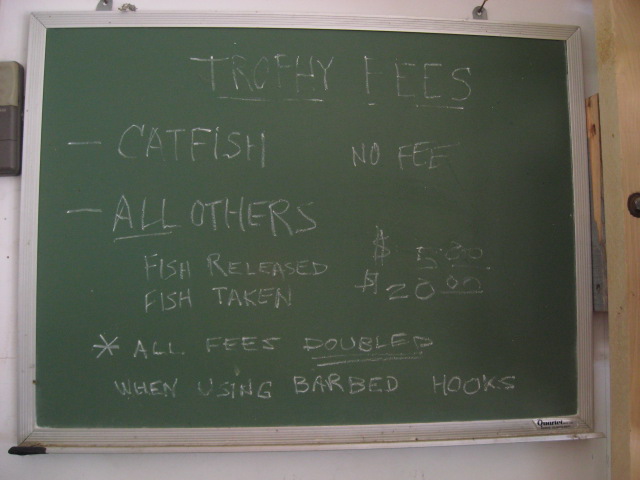 TROPHY FEES
— CATFISH NO FEE
— ALL OTHERS
FISH RELEASED $ 5.00
FISH TAKEN $20.00
* ALL FEES DOUBLED
WHEN USING BARBED HOOKS
Quartet